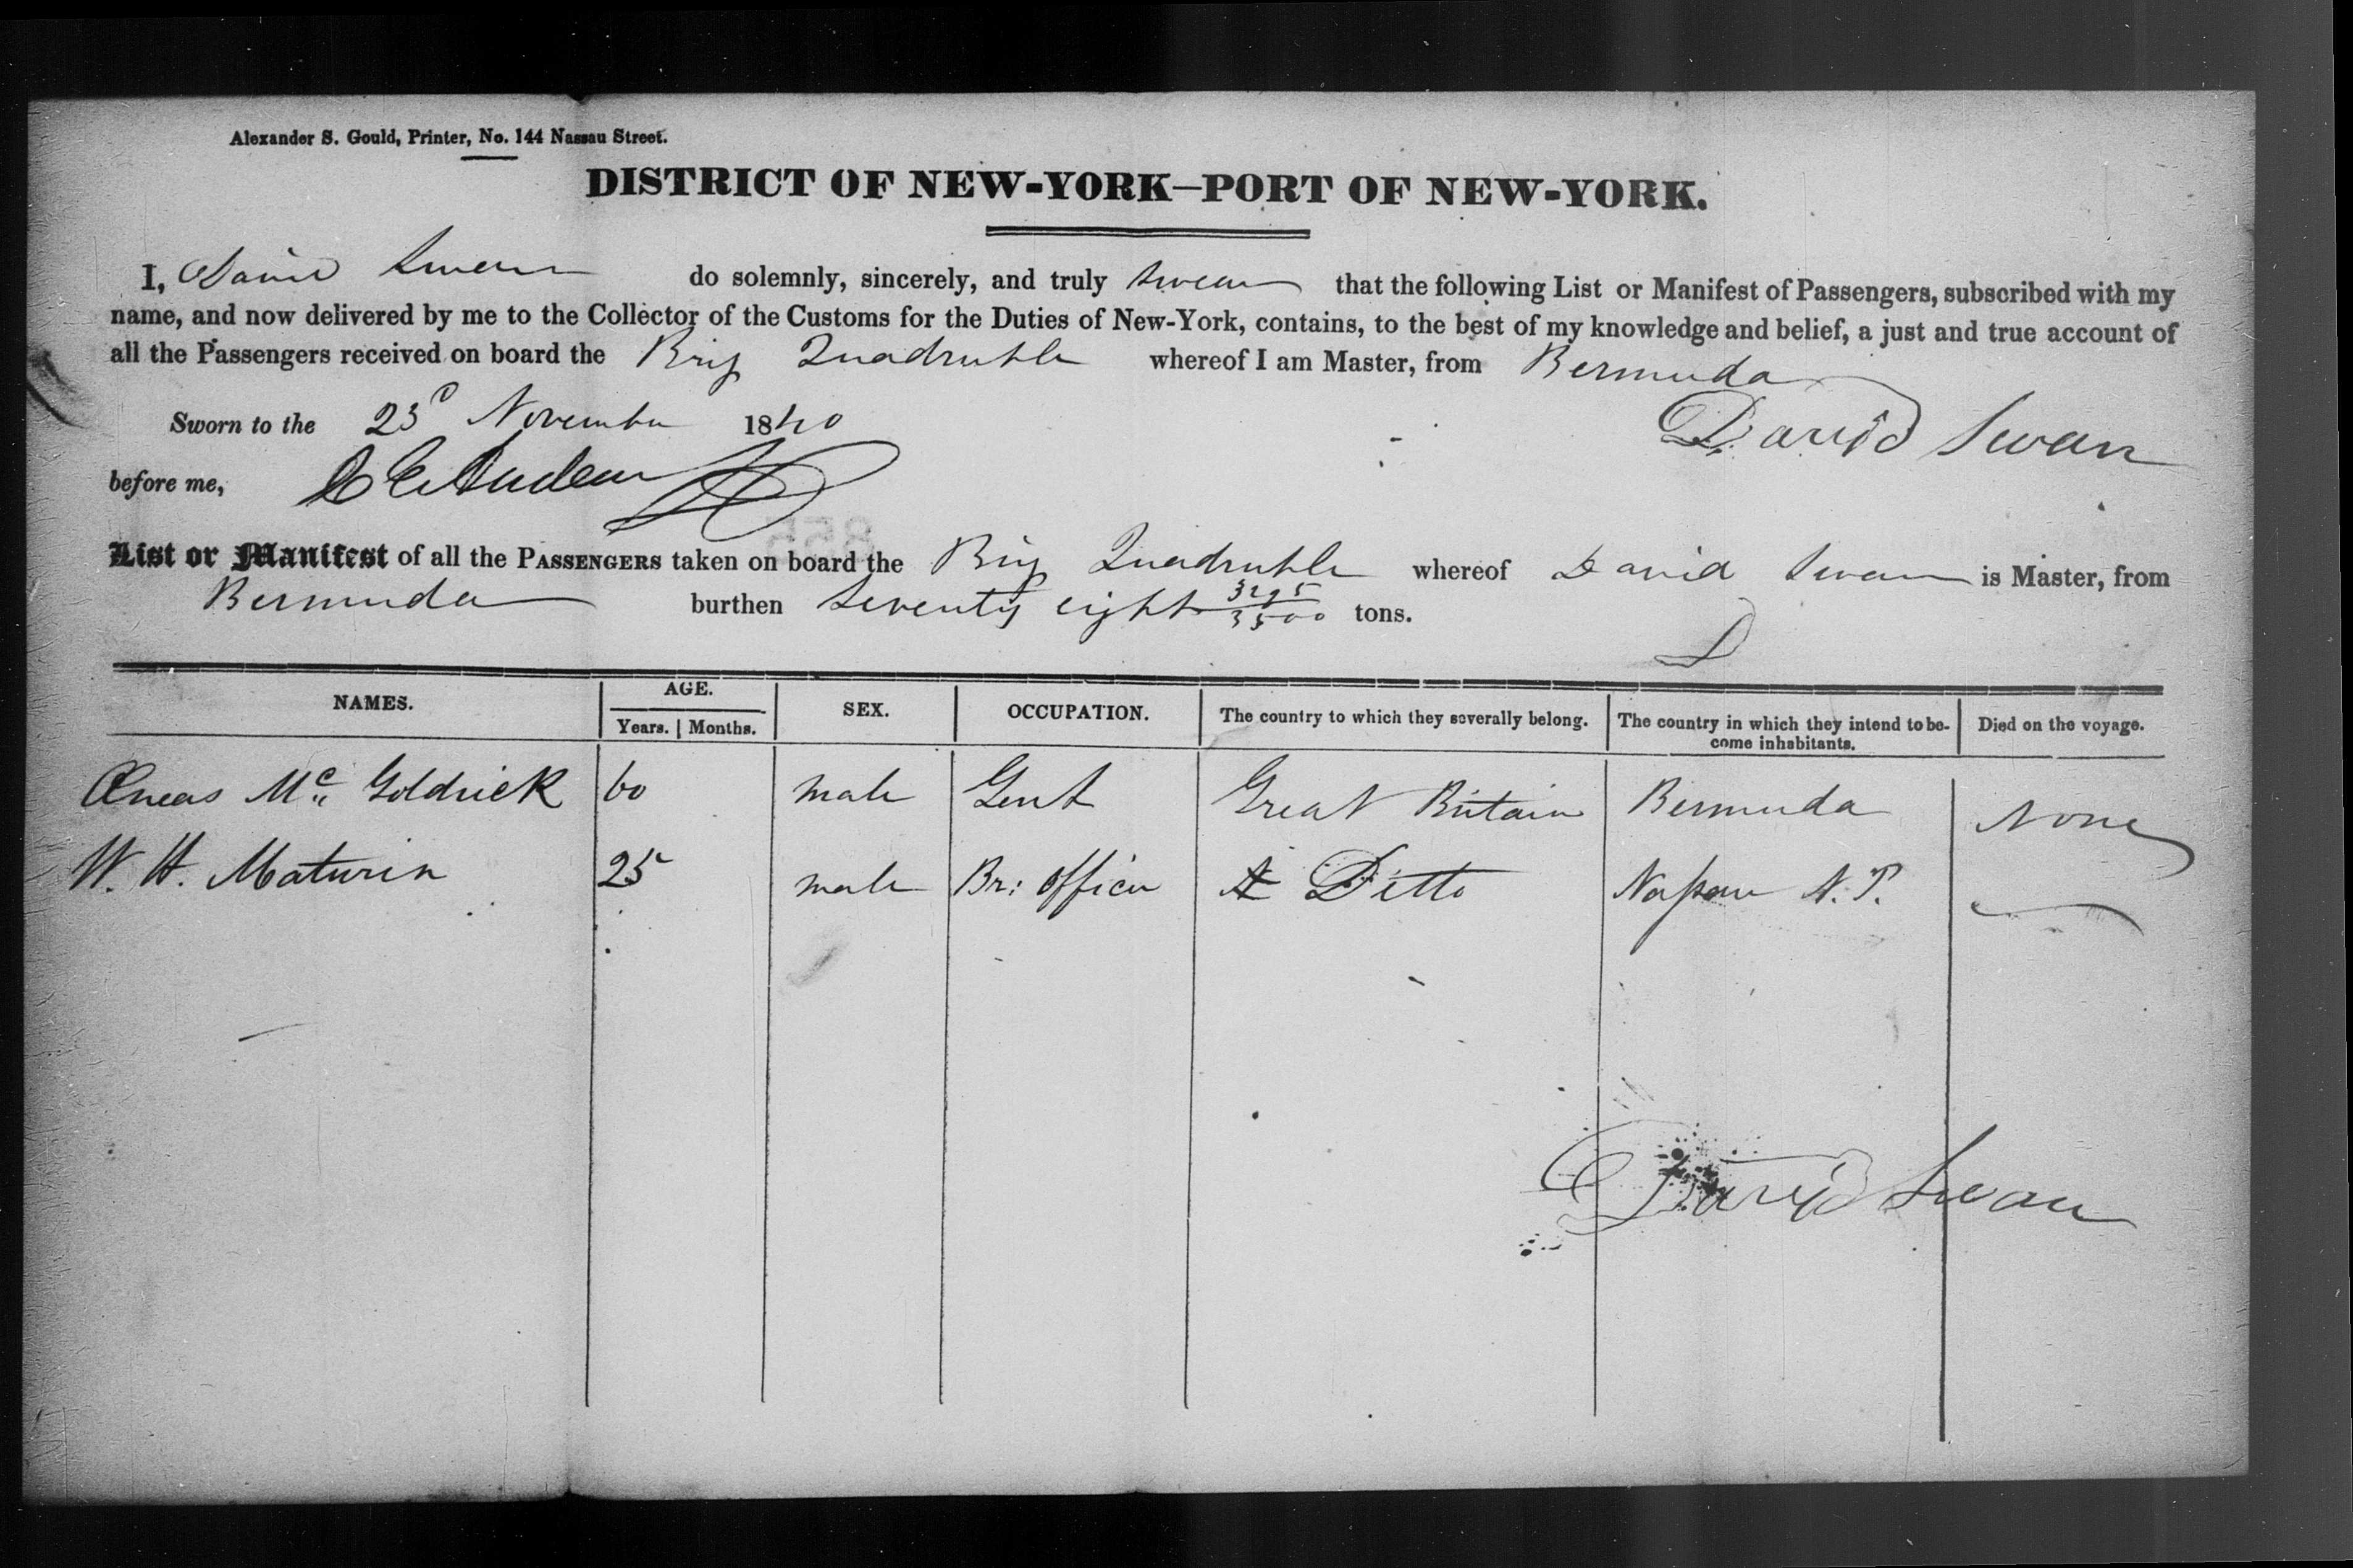 Alexander S. Gould, Printer, No. 144 Nassau Street.
DISTRICT OF NEW-YORK—PORT OF NEW-YORK.
I, David Swan do solemnly, sincerely, and truly swear that the following List or Manifest of Passengers, subscribed with my
name, and now delivered by me to the Collector of the Customs for the Duties of New-York, contains, to the best of my knowledge and belief, a just and true account of
all the Passengers received on board the Brig Quadruple whereof I am Master, from Bermuda
Sworn to the 23d November 1840 David Swan
before me,
List or Manifest of all the PASSENGERS taken on board the Brig Quadruple whereof David Swan is Master, from
Bermuda burthen Seventy eight 3295/3500 tons.
NAMES. AGE. SEX. OCCUPATION. The country to which they severally belong. The country in which they intend to be- Died on the voyage.
Years. Months. come inhabitants.
Æneas Mc Goldrick 60 male Gent Great Britain Bermuda None
W. H. Maturin 25 male Br: officer Ditto Nassau N.P.
David Swan